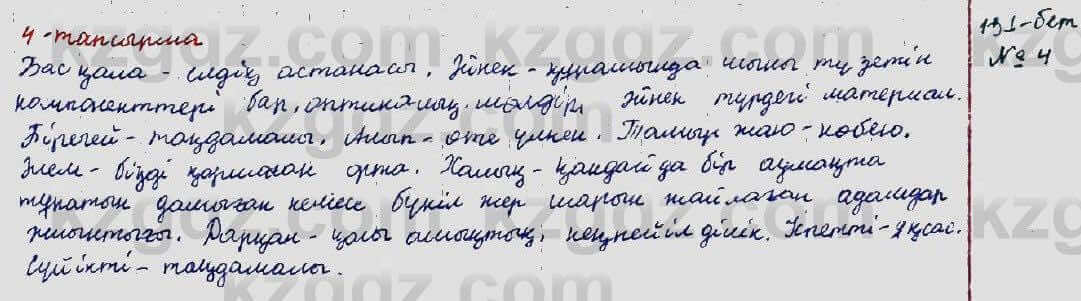 4-тапсырма
131-бет
№ 4
Бас қала - елдің астанасы. Әйнек - құрамында шыны түзетін
компоненттері бар, оптикалық мөлдір, әйнек түрдегі материал.
Бірегей - таңдамалы. Алып - өте үлкен. Тамыр жаю - көбею.
Әлем - бізді қоршаған орта. Халық - қандай да бір аумақта
тұратын дамыған немесе бүкіл жер шарын жайлаған адамдар
жиынтығы. Дарқан - қолы ашықтық, кеңпейілділік. Іспетті - ұқсас.
Сүйікті - таңдамалы.